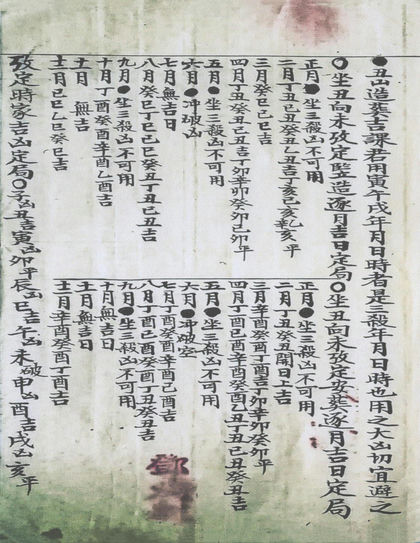 ●丑山造葬吉課若用寅午戌年月日時者是三殺年月日時也用之大凶切宜避之
○坐丑向未攷定竪造逐月吉日定局
正月●坐三殺凶不可用
二月丁丑己丑癸丑乙丑吉丁亥己亥乾亥平
三月癸巳己巳吉
四月丁丑癸丑乙丑吉丁卯辛卯癸卯己卯平
五月●坐三殺凶不可用
六月●冲破山
七月無吉日
八月癸巳丁巳己巳癸丑丁丑己丑吉
九月●坐三殺凶不可用
十月丁酉癸酉辛酉乙酉吉
十一月無吉
十二月己巳乙巳癸巳吉
○坐丑向未攷定安葬逐月吉日定局
正月●坐三殺凶不可用
二月丁丑癸丑開日上吉
三月辛酉癸酉丁酉吉丁卯辛卯癸卯平
四月丁酉己酉辛酉癸酉乙丑丁丑己丑癸丑吉
五月●坐三殺凶不可用
六月●冲破
七月丁酉癸酉辛酉己酉吉
八月丁酉己酉癸酉丁丑癸丑吉
九月●坐三殺凶不可用
十月無吉日
十一月無吉日
十二月辛酉癸酉丁酉吉
攷定時家吉凶定局○子凶丑吉寅凶卯平辰凶巳吉午凶未破申凶酉吉戌凶亥平
鄧